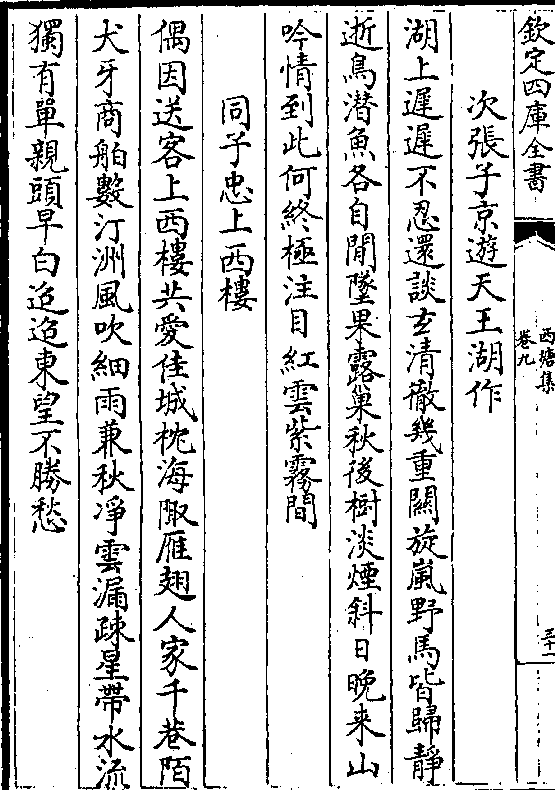 欽定四庫全書
西塘集
卷九
三十一
次張子京遊天王湖作
湖上遲遲不忍還談玄清徹幾重關旋嵐野馬皆歸靜
逝鳥潛魚各自閒墜果露巢秋後樹淡煙斜日晚來山
吟情到此何終極注目紅雲紫霧間
同子忠上西樓
偶因送客上西樓共愛佳城枕海陬雁翅人家千巷陌
犬牙商舶數汀洲風吹細雨兼秋凈雲漏疎星帶水流
獨有單親頭早白迢迢東望不勝愁